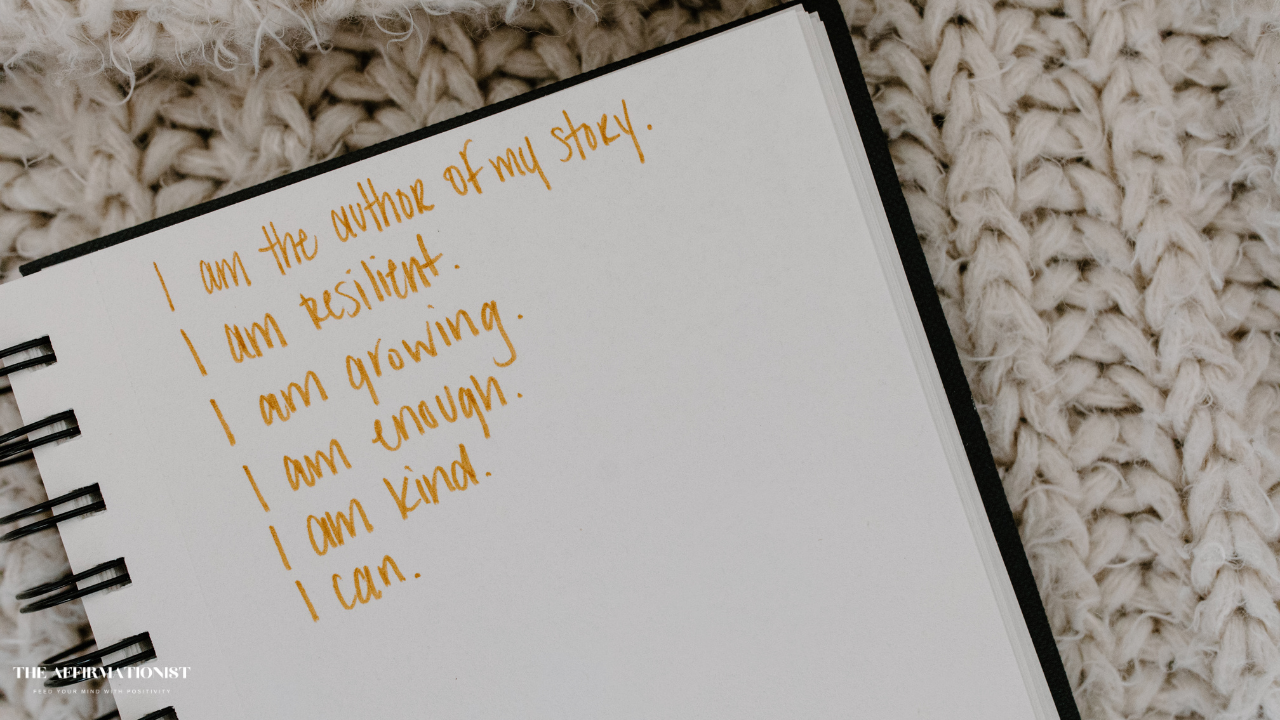 I am the author of my story.
I am resilient.
I am growing.
I am enough.
I am kind.
I can.
THE AFFIRMATIONIST
FEED YOUR MIND WITH POSITIVITY